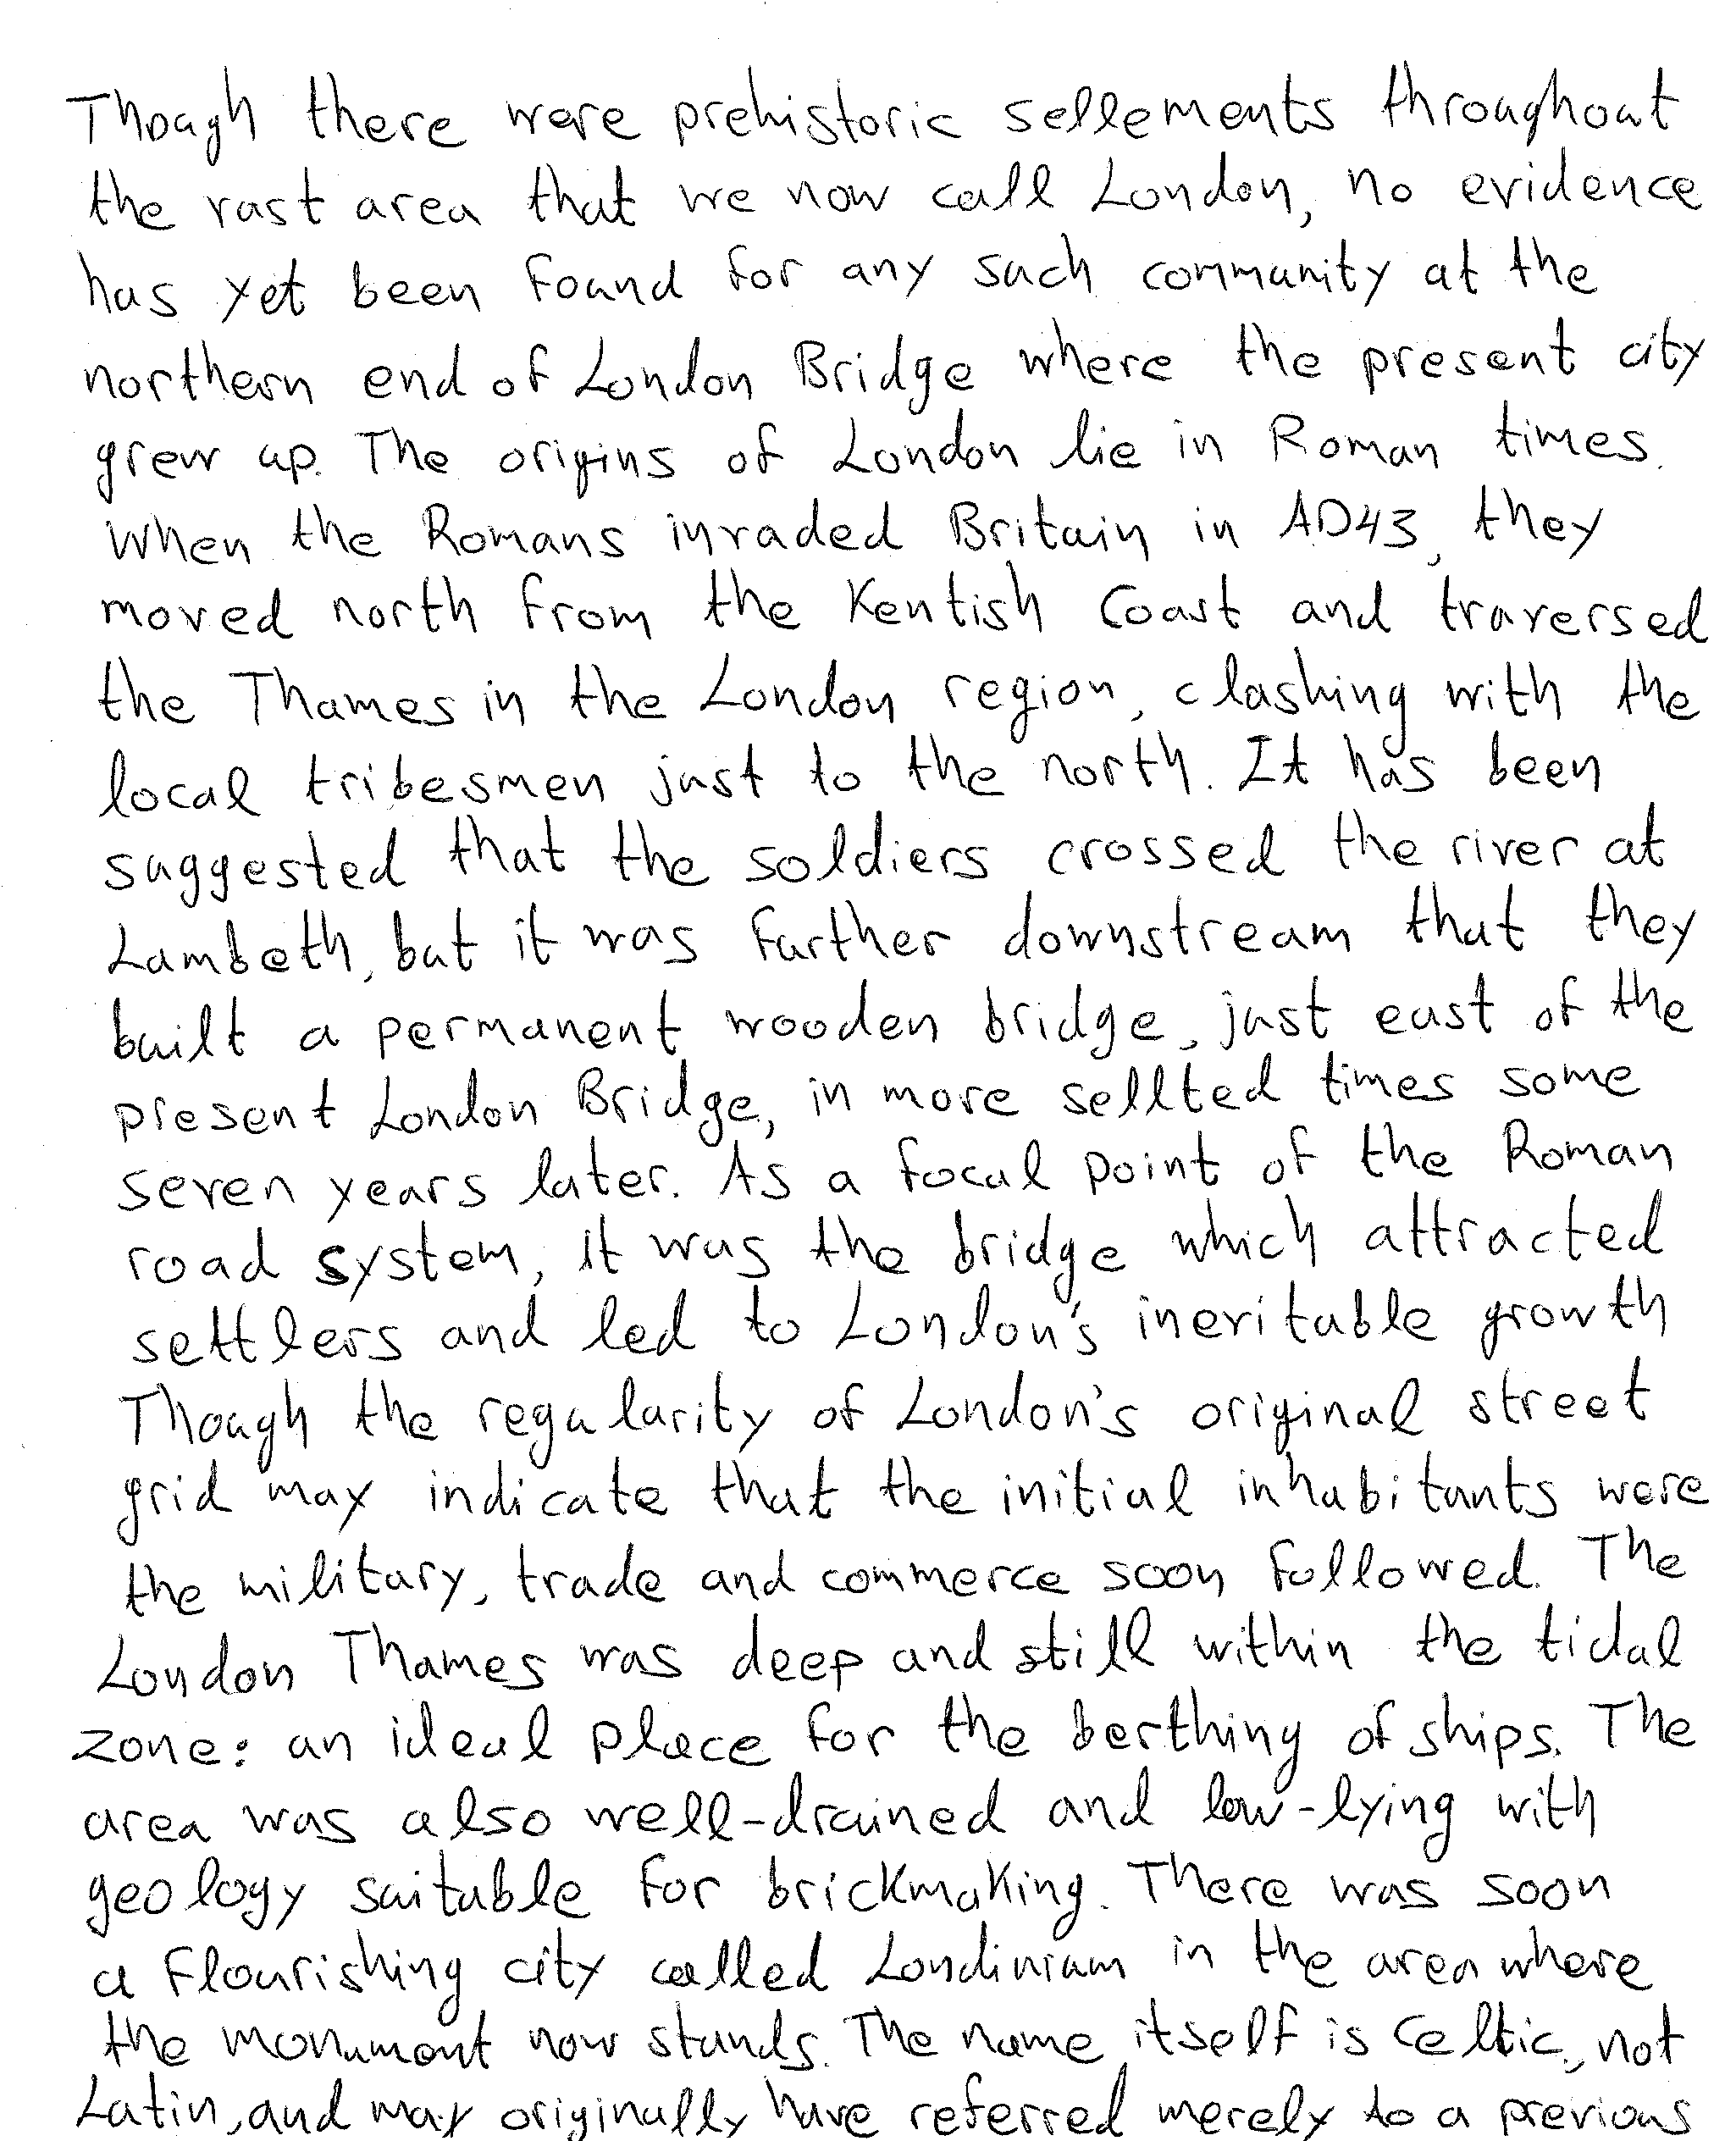 Though there were prehistoric sellements throughout
the vast area that we now call London, no evidence
has yet been found for any such community at the
northern end of London Bridge where the present city
grew up. The origins of London lie in Roman times.
When the Romans invaded Britain in AD43, they
moved north from the Kentish Coast and traversed
the Thames in the London region, clashing with the
local tribesmen just to the north. It has been
suggested that the soldiers crossed the river at
Lambeth, but it was further downstream that they
built a permanent wooden bridge, just east of the
present London Bridge, in more sellted times some
seven years later. As a focal point of the Roman
road system, it was the bridge which attracted
settlers and led to London's inevitable growth
Though the regularity of London's original street
grid may indicate that the initial inhabitants were
the military, trade and commerce soon followed. The
London Thames was deep and still within the tidal
zone: an ideal place for the berthing of ships. The
area was also well-drained and low-lying with
geology suitable for brickmaking. There was soon
a flourishing city called Londinium in the area where
the monument now stands. The name itself is Celtic, not
Latin, and may originally have referred merely to a previous